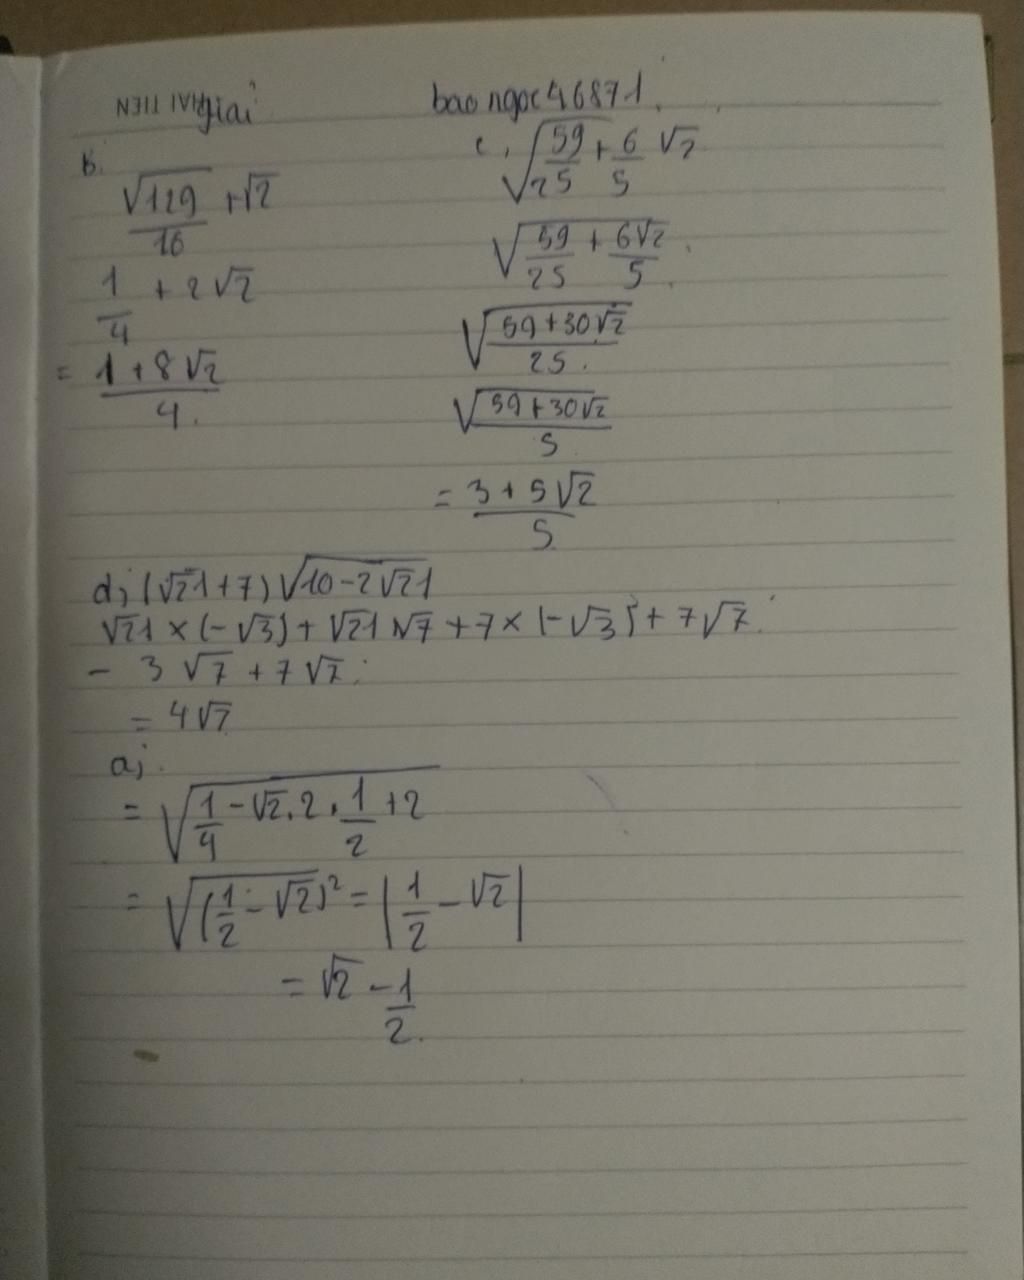 HAI TIEN
giai
bao ngoc46871.
b.
√129/16 + √2
1/4 + 2√2
= (1 + 8√2)/4.
c, √(59/25 + 6/5 √2
√(59/25 + 6√2/5).
√((59+30√2)/25).
√(59+30√2)/5
= (3 + 5√2)/5
d; (√21+7)√(10-2√21)
√21 × (-√3) + √21 √7 + 7 × (-√3) + 7√7.
- 3√7 + 7√7.
= 4√7
a;
= √(1/4 - √2.2.1/2 + 2)
= √(1/2 - √2)² = |1/2 - √2|
= √2 - 1/2.